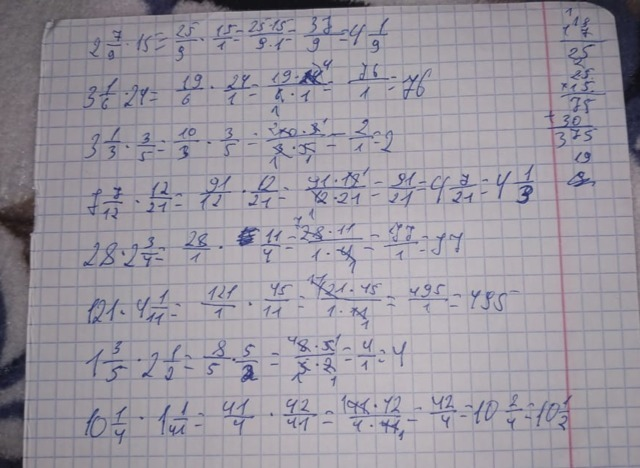 2 7/9 · 15 = 25/9 · 15/1 = 25·15/9·1 = 37/9 = 4 1/9
3 1/6 · 24 = 19/6 · 24/1 = 19·24/6·1 = 76/1 = 76
3 1/3 · 3/5 = 10/3 · 3/5 = 10·3/3·5 = 2/1 = 2
7 7/12 · 12/21 = 91/12 · 12/21 = 91·12/12·21 = 91/21 = 4 7/21 = 4 1/3
28 · 2 3/4 = 28/1 · 11/4 = 28·11/1·4 = 77/1 = 77
121 · 4 1/11 = 121/1 · 45/11 = 121·45/1·11 = 495/1 = 495
1 3/5 · 2 1/2 = 8/5 · 5/2 = 8·5/5·2 = 4/1 = 4
10 1/4 · 1 1/41 = 41/4 · 42/41 = 41·42/4·41 = 42/4 = 10 2/4 = 10 1/2
25
25
15
75
+ 30
375
19